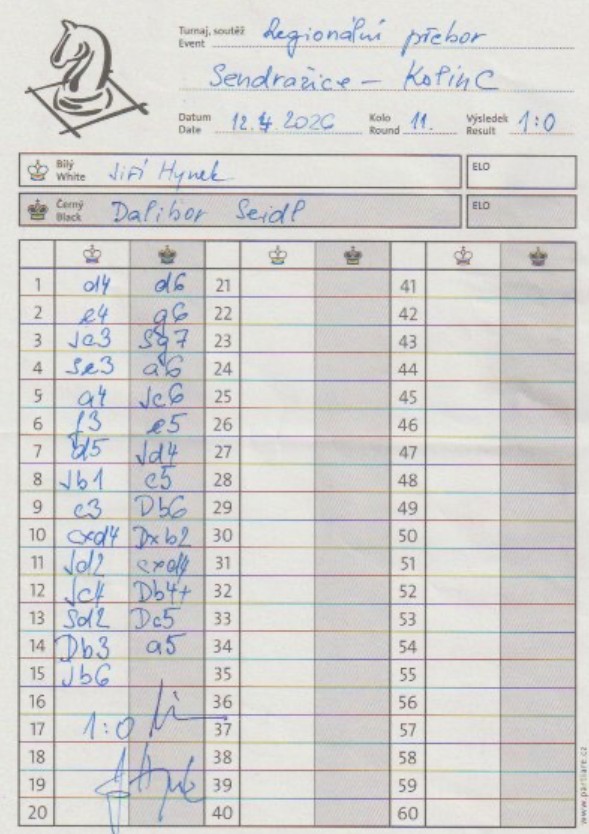 Turnaj, soutěž
Event
Regionální přebor
Sendražice - Kolín C
Datum
Date
12.4.2026
Kolo
Round
11.
Výsledek
Result
1:0
Bílý
White
Jiří Hynek
ELO
Černý
Black
Dalibor Seidl
ELO
1 d4 d6 21 41
2 e4 g6 22 42
3 Jc3 Sg7 23 43
4 Se3 a6 24 44
5 a4 Jc6 25 45
6 f3 e5 26 46
7 d5 Jd4 27 47
8 Jb1 c5 28 48
9 c3 Db6 29 49
10 cxd4 Dxb2 30 50
11 Jd2 cxd4 31 51
12 Jc4 Db4+ 32 52
13 Sd2 Dc5 33 53
14 Db3 a5 34 54
15 Jb6 35 55
16 36 56
17 1:0 37 57
18 38 58
19 39 59
20 40 60
www.partiare.cz